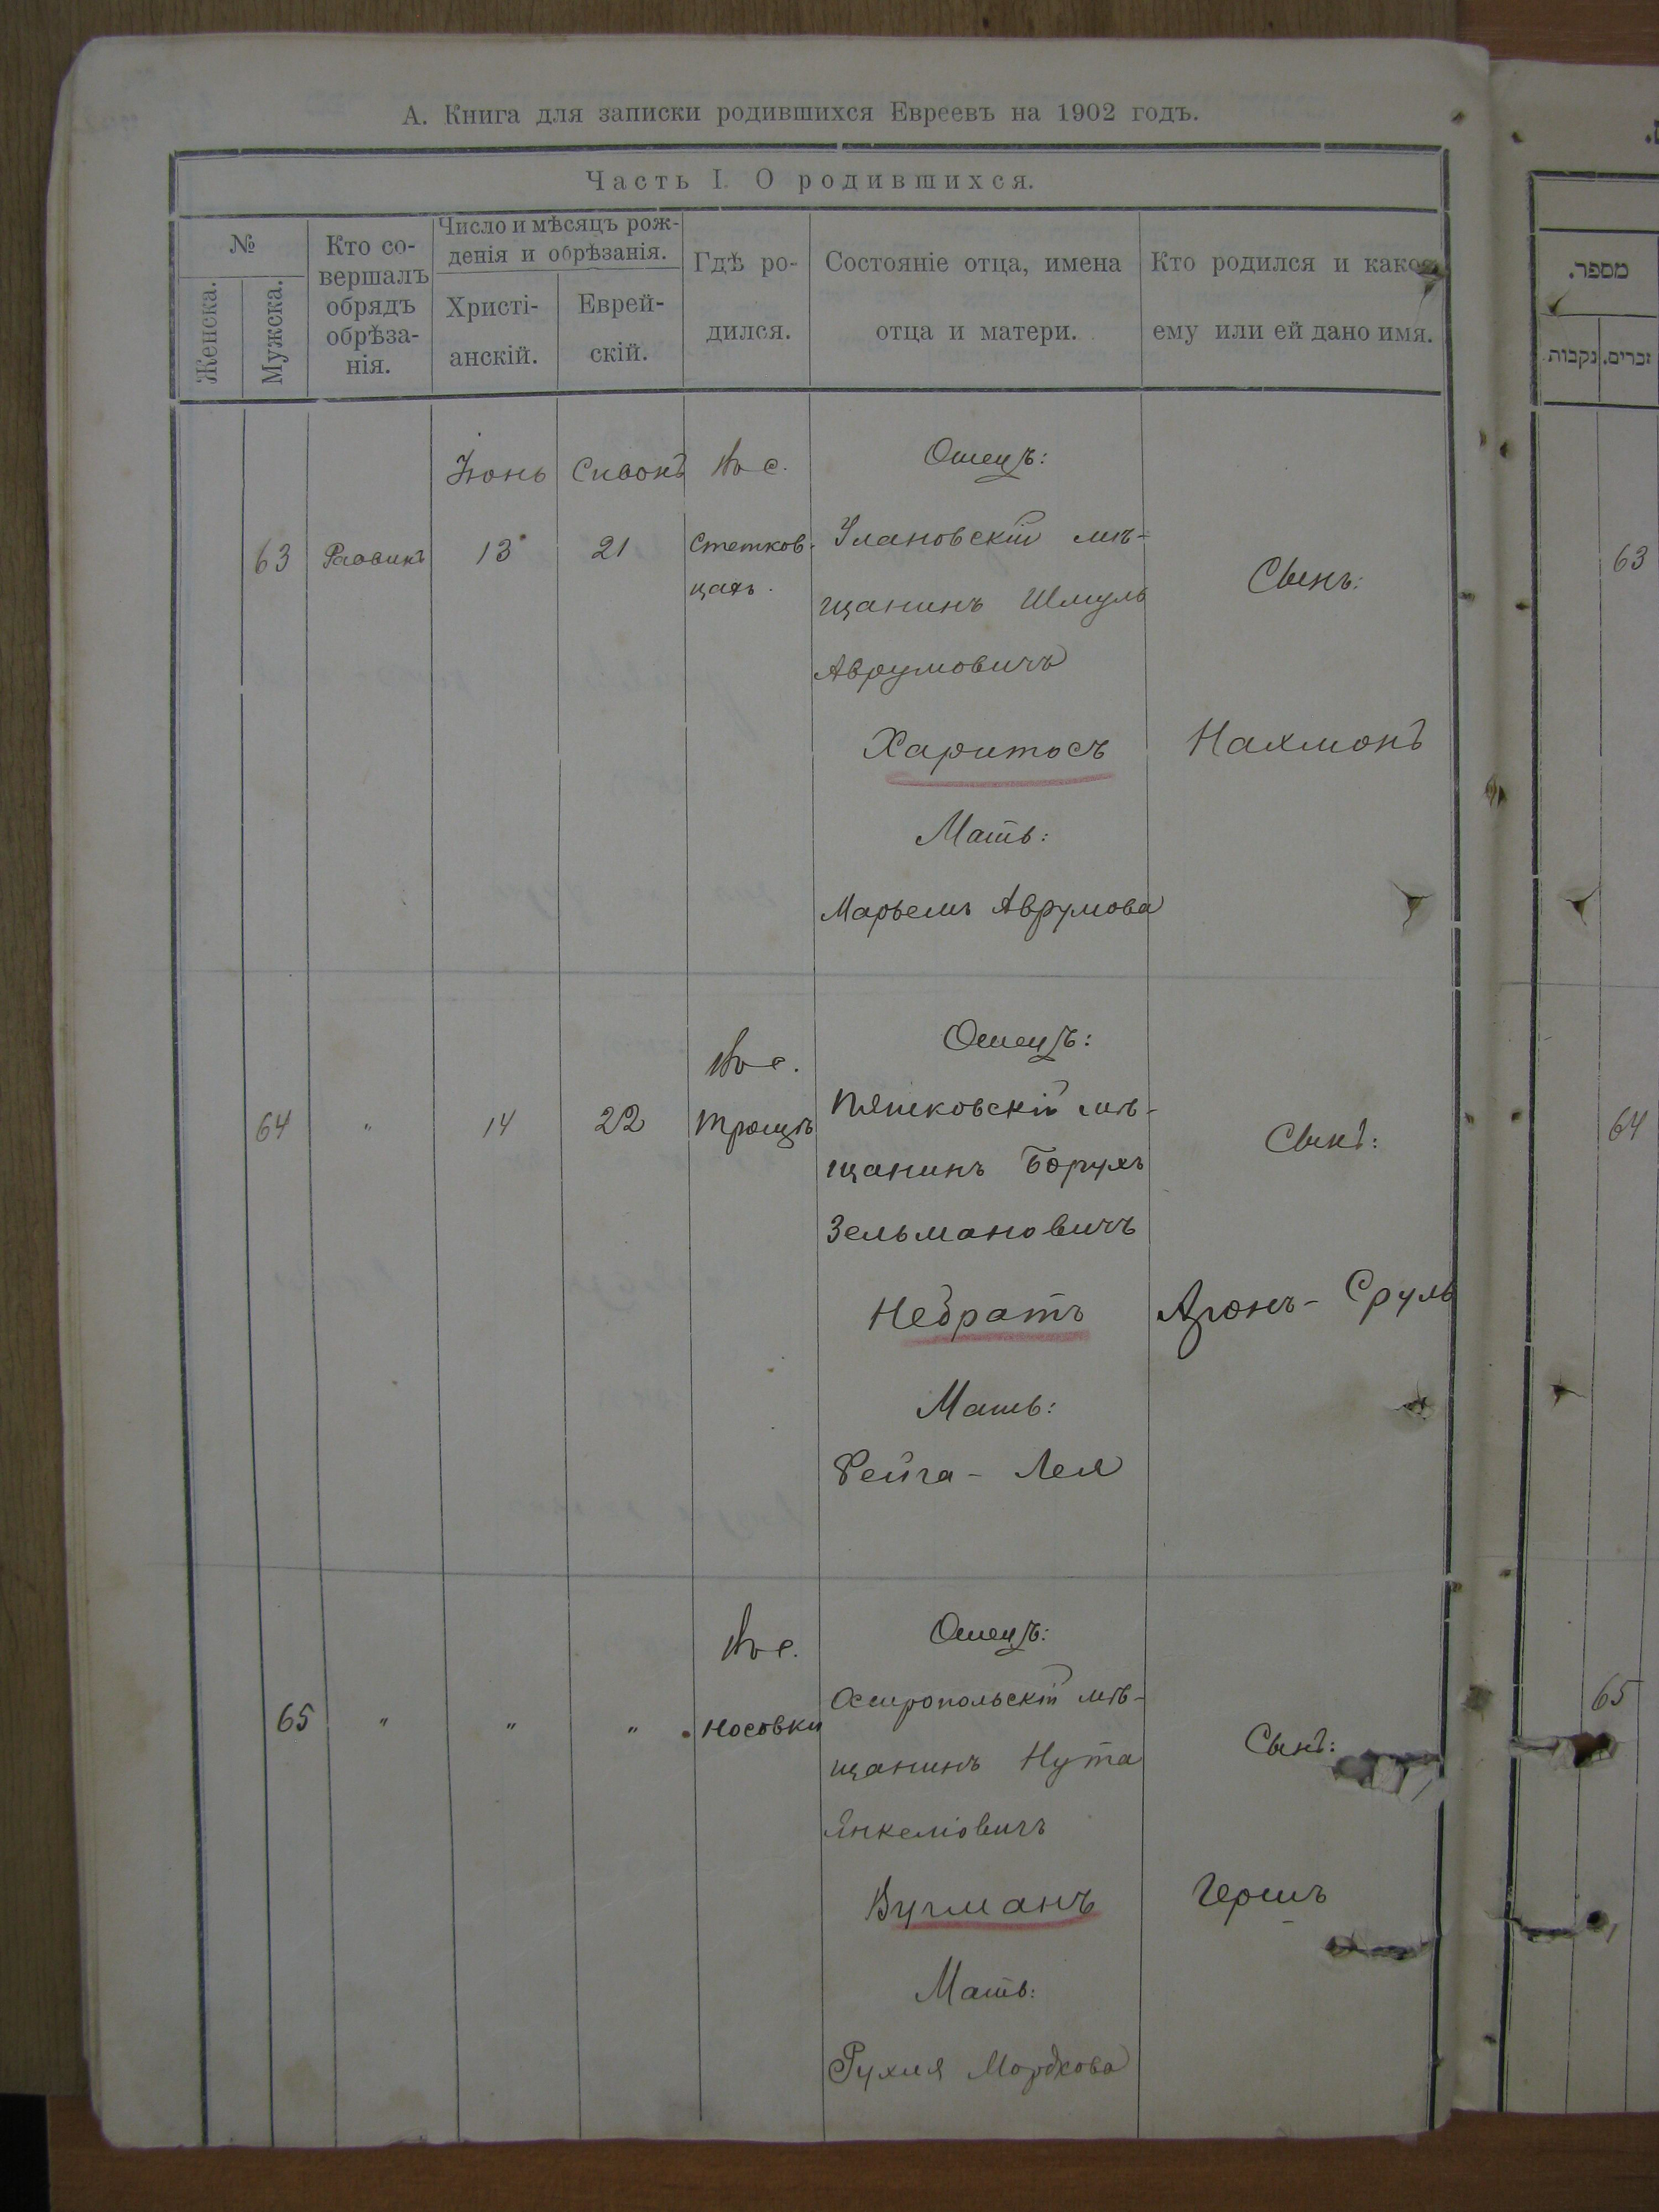 А. Книга для записки родившихся Евреевъ на 1902 годъ.
Часть I. О родившихся.
№
Женска.
Мужска.
Кто со-
вершалъ
обрядъ
обрѣза-
нія.
Число и мѣсяцъ рож-
денія и обрѣзанія.
Христі-
анскій.
Еврей-
скій.
Гдѣ ро-
дился.
Состояніе отца, имена
отца и матери.
Кто родился и какое
ему или ей дано имя.
מספר.
זכרים.
נקבות
Іюнь
Сивонъ
Въ с.
Отецъ:
63
Раввинъ
13
21
Стетков-
цахъ.
Улановскій мѣ-
щанинъ Шмуль
Аврумовичъ
Харитосъ
Мать:
Марьемъ Аврумова
Сынъ:
Нахмонъ
63
Въ с.
Отецъ:
64
"
14
22
Трощѣ
Пятковскій мѣ-
щанинъ Борухъ
Зельмановичъ
Недратъ
Мать:
Фейга - Лея
Сынъ:
Аронъ - Сруль
64
Въ с.
Отецъ:
65
"
"
"
Носовки
Остропольскій мѣ-
щанинъ Нута
Янкелiовичъ
Вугманъ
Мать:
Рухля Мордкова
Сынъ:
Гершъ
65